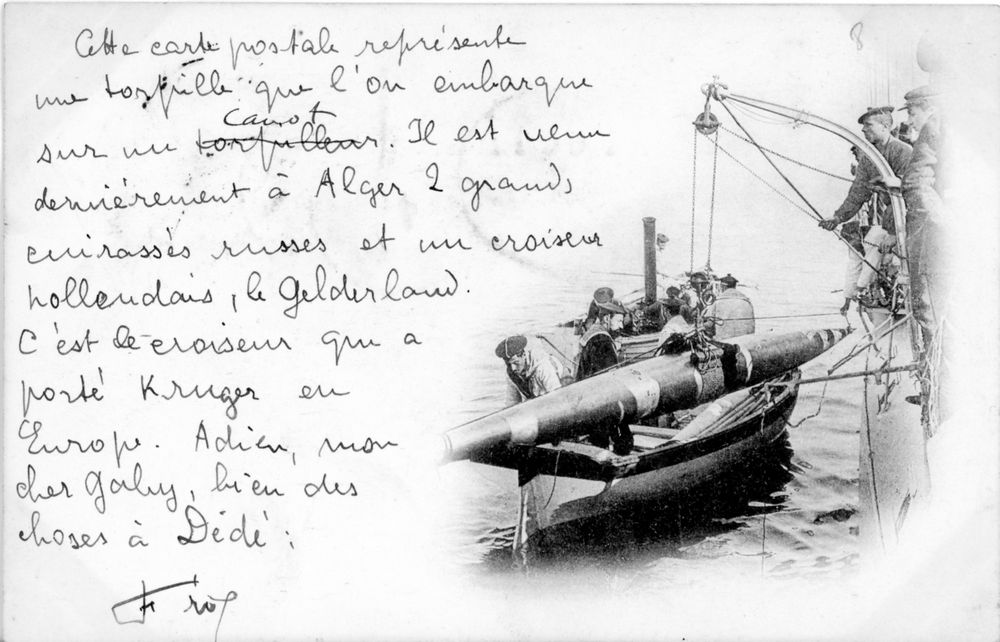 8
Cette carte postale représente
une torpille que l'on embarque
sur un canot torpilleur. Il est venu
dernièrement à Alger 2 grands
cuirassés russes et un croiseur
hollandais, le Gelderland.
C'est le croiseur qui a
porté Kruger en
Europe. Adieu, mon
cher Gaby, bien des
choses à Dédé.